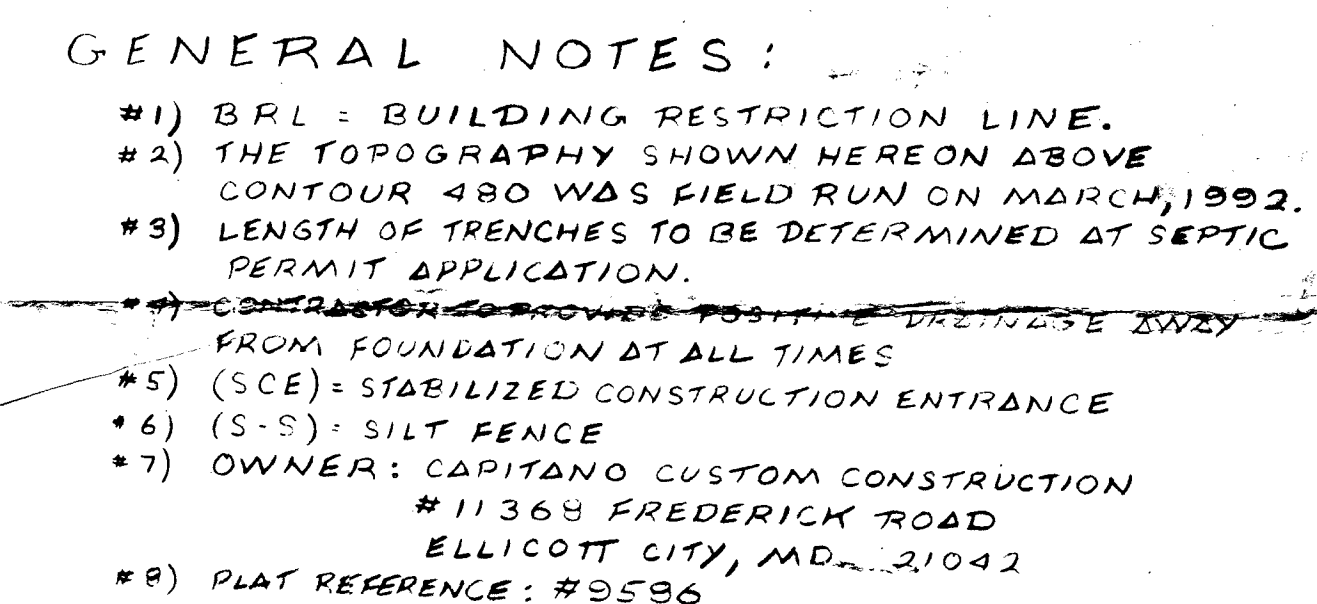 GENERAL NOTES:
#1) BRL = BUILDING RESTRICTION LINE.
#2) THE TOPOGRAPHY SHOWN HEREON ABOVE
CONTOUR 480 WAS FIELD RUN ON MARCH, 1992.
#3) LENGTH OF TRENCHES TO BE DETERMINED AT SEPTIC
PERMIT APPLICATION.
#4) CONTRACTOR TO PROVIDE POSITIVE DRAINAGE AWAY
FROM FOUNDATION AT ALL TIMES
#5) (SCE) = STABILIZED CONSTRUCTION ENTRANCE
#6) (S-S) = SILT FENCE
#7) OWNER: CAPITANO CUSTOM CONSTRUCTION
#11368 FREDERICK ROAD
ELLICOTT CITY, MD 21042
#8) PLAT REFERENCE: #9596